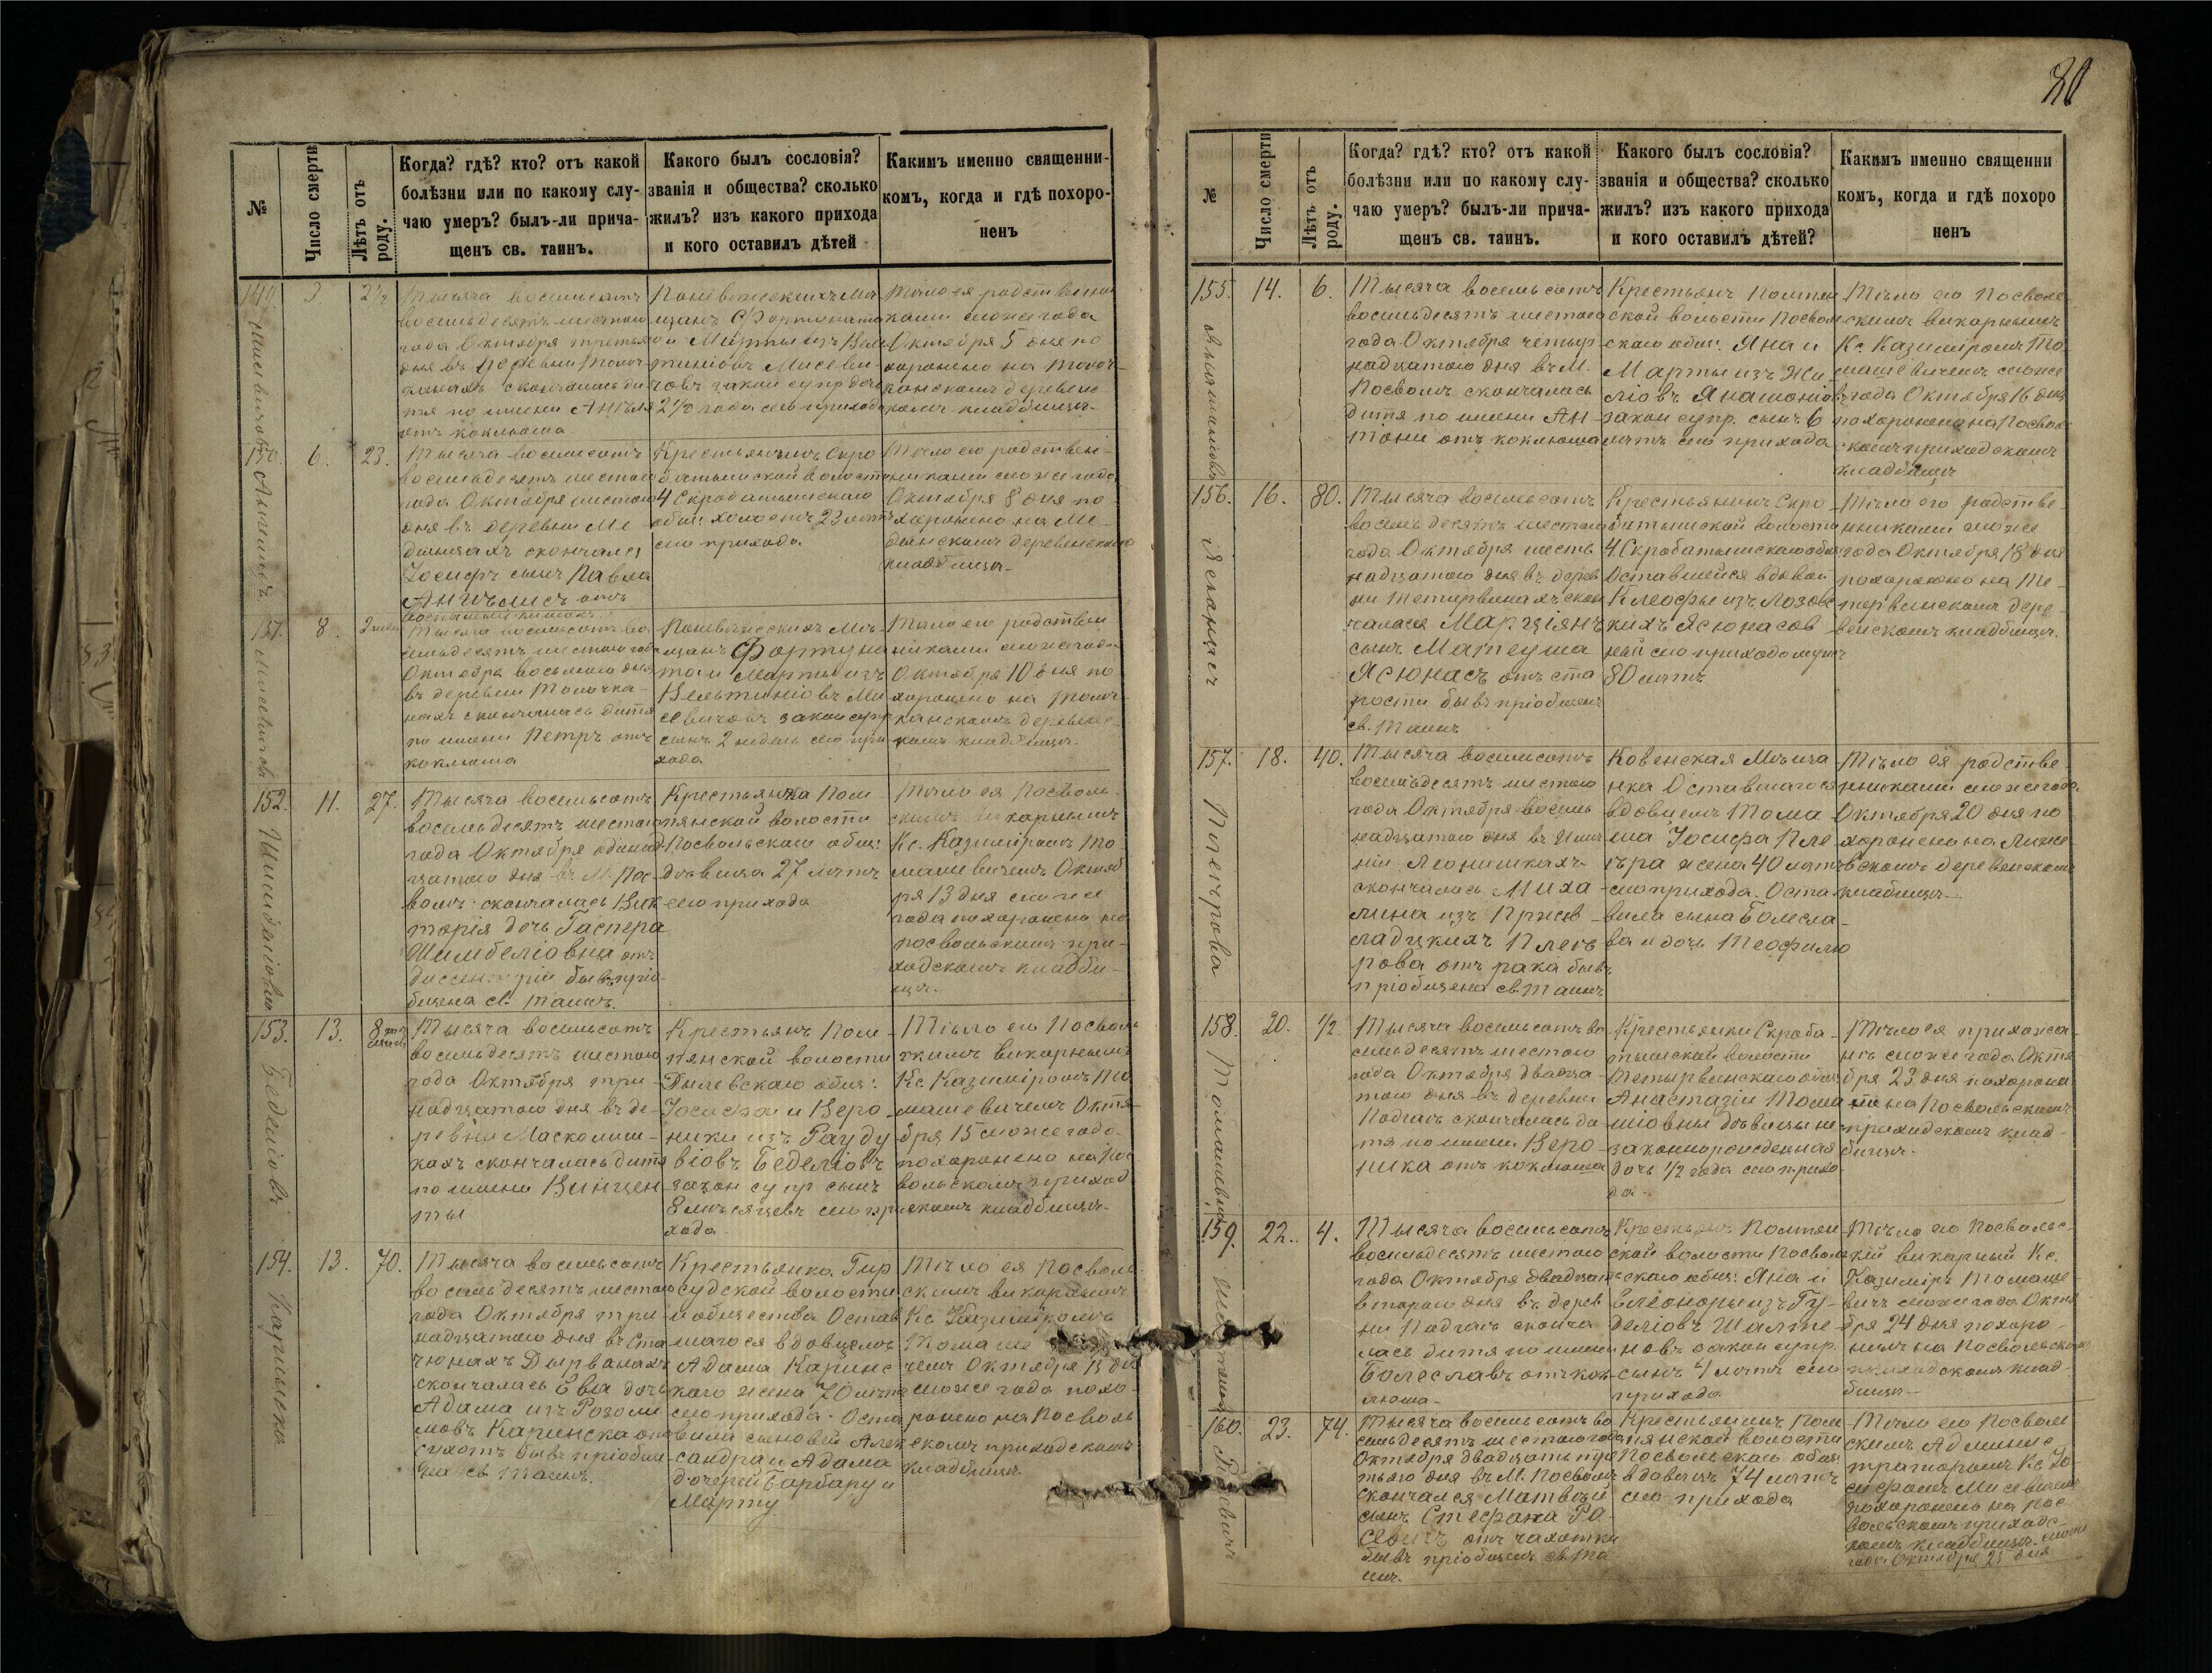 80
№
Число смерти
Лѣтъ отъ роду.
Когда? гдѣ? кто? отъ какой
болѣзни или по какому слу-
чаю умеръ? былъ-ли прича-
щенъ св. таинъ.
Какого былъ сословія?
званія и общества? сколько
жилъ? изъ какого прихода
и кого оставилъ дѣтей
Какимъ именно священни-
комъ, когда и гдѣ похоро-
ненъ
149
3.
2½
Тысяча восемьсотъ
восемьдесятъ шестого
года Октября третья
дня въ деревни
скончалась ди
тя по имени Ангеля
отъ коклюша
Поневежскихъ Мѣ
щанъ Фортуната
и Марты изъ Вел
тиніовъ Мисеви-
човъ закон супр дочь
2½ года сего прихода
Тѣло ея родственни
ками сего же года
Октября 5 дня по
хоронено на
деревенс
комъ кладбищѣ.
150.
6.
23.
Тысяча восемьсотъ
восемьдесятъ шестого
года Октября шестого
дня въ деревни Ме
скончался
Іосифъ сынъ Павла
отъ
Крестьянинъ Скро
батышской волости
4 Скробатышскаго
общ: холостъ 23 лѣтъ
сего прихода.
Тѣло его родствен-
никами сего же года
Октября 8 дня по
хоронено на Ме-
деревенскомъ
кладбищѣ.
151.
8.
2 недѣл
Тысяча восемьсотъ во
семьдесятъ шестого года
Октября восьмого дня
въ деревни Толочка-
нахъ скончалась дитя
по имени Петръ отъ
коклюша
Поневежскихъ Мѣ-
щанъ Фортуна
та и Марты изъ
Вельтиніовъ Ми
севичовъ закон супр
сынъ 2 недель сего при
хода
Тѣло его родствен
никами сего же года
Октября 10 дня по
хоронено на Толоч
канскомъ деревенс
комъ кладбищѣ.
152.
11.
27.
Тысяча восемьсотъ
восемьдесятъ шестого
года Октября одинад
цатого дня въ М. Пос
волѣ скончалась Вик
торія дочь Гаспера
Шимбеліовна отъ
диссентеріи бывъ пріо-
бщена св. таинъ.
Крестьянка Пом
пянской волости
Посвольскаго общ:
дѣвица 27 лѣтъ
сего прихода
Тѣло ея Посволь
скимъ викарнымъ
Кс. Казиміромъ То-
машевичемъ Октяб
ря 13 дня сего же
года похоронено на
посвольскимъ при-
ходскомъ кладби-
щѣ.
153.
13.
8 мѣс
яцовъ
Тысяча восемьсотъ
восемьдесятъ шестого
года Октября три-
надцатого дня въ де-
ревни Масколиш-
кахъ скончалась дитя
по имени Винцен
ты
Крестьянъ Пом-
пянской волости
общ:
Іосифа и Веро-
ники изъ Рауду
віовъ Беделіовъ
закон супр сынъ
8 мѣсяцевъ сего при
хода
Тѣло его Посволь
скимъ викарнымъ
Кс. Казиміромъ То
машевичемъ Октя-
бря 15 сего же года
похоронено на Пос
вольскомъ приход
скомъ кладбищѣ.
154.
13.
70.
Тысяча восемьсотъ
восемьдесятъ шестого
года Октября три-
надцатого дня въ Ста
чюнахъ Дырванахъ
скончалась Ева дочь
Адама изъ Розоли
мовъ Каринска отъ
сухотъ бывъ пріобще
на св таинъ.
Крестьянка Гир
судской волости
и общества Остав
шагося вдовцемъ
Адама Каринс
каго жена 70 лѣтъ
сего прихода. Оста
вила сыновей Алек
сандра и Адама
дочерей Барбару и
Марту
Тѣло ея Посволь
скимъ викарнымъ
Кс. Казиміромъ
Томаше
чемъ Октября 15 дня
сего же года похо-
ронено на Посволь
скомъ приходскомъ
кладбищѣ
№
Число смерти
Лѣтъ отъ роду.
Когда? гдѣ? кто? отъ какой
болѣзни или по какому слу-
чаю умеръ? былъ-ли прича-
щенъ св. таинъ.
Какого былъ сословія?
званія и общества? сколько
жилъ? изъ какого прихода
и кого оставилъ дѣтей?
Какимъ именно священни
комъ, когда и гдѣ похоро
ненъ
155.
14.
6.
Тысяча восемьсотъ
восемьдесятъ шестого
года Октября четыр
надцатого дня въ М.
Посволѣ скончалась
дитя по имени Ан-
тони отъ коклюша
Крестьянъ Помпян
ской волости Посволь
скаго общ: Яна и
Марты изъ Жи-
ліовъ
закон супр. сынъ 6
лѣтъ сего прихода
Тѣло его Посволь-
скимъ викарнымъ
Кс. Казиміромъ То-
машевичемъ сего же
года Октября 16 дня
похоронено на Посволь
скомъ приходскомъ
кладбищѣ
156.
16.
80.
Тысяча восемьсотъ
восемьдесятъ шестого
года Октября шесть
надцатого дня въ дерев
ни Тетервинахъ скон
чался Марціянъ
сынъ Матеуша
Ясюнасъ отъ ста
рости бывъ пріобщенъ
св. Таинъ
Крестьянинъ Скро
батышской волости
4 Скробатышскаго общ:
Оставшейся вдовой
Клеофы изъ Лозовс
кихъ Ясюнасов
ней сего прихода мужъ
80 лѣтъ
Тѣло его родстве
нниками сего же
года Октября 18 дня
похоронено на Те-
тервинскомъ дере-
венскомъ кладбищѣ.
157.
18.
40.
Тысяча восемьсотъ
восемьдесятъ шестого
года Октября восемь
надцатого дня въ имѣ
ніи Леонишкахъ
скончалась Миха-
лина изъ
рова отъ рака бывъ
пріобщена св. Таинъ
Ковенская Мѣща
нка Оставшагося
вдовцемъ Тома
ша Іосифа Пле
гѣра жена 40 лѣтъ
сего прихода. Оста
вила сына Болесла-
ва и дочь Теофилю
Тѣло ея родстве
нниками сего же года
Октября 20 дня по
хоронено на
деревенскомъ
кладбищѣ.
158.
20.
½
Тысяча восемьсотъ во
семьдесятъ шестого
года Октября двадца-
того дня въ деревни
Подгаѣ скончалась ди
тя по имени Веро-
ника отъ коклюша
Крестьянки Скроба-
тышской волости
Тетырвинскаго общ:
Анастазіи Тома
шовны дѣвицы не
законнорожденная
дочь ½ года сего прихо
да.
Тѣло ея прихожа-
нѣ сего же года Октя
бря 23 дня похорони
ли на Посвольскимъ
приходскомъ клад-
бищѣ.
159.
22.
4.
Тысяча восемьсотъ
восемьдесятъ шестого
года Октября двадцать
второго дня въ дерев
ни Подгаѣ сконча
лась дитя по имени
Болеславъ отъ кок
люша.
Крестьянъ Помпян
ской волости Посволь
скаго общ: Яна и
Еліоноры изъ Гу-
деліовъ
закон супр.
сынъ 4 лѣтъ сего
прихода
Тѣло его Посвольс-
кій викарный Кс.
Казиміръ Томаше-
вичъ сего же года Октя
бря 24 дня похоро-
нилъ на Посвольскомъ
приходскомъ клад-
бищѣ.
160.
23.
74.
Тысяча восемьсотъ во
семьдесятъ шестого года
Октября двадцать тре
тьяго дня въ М. Посволѣ
скончался Матвѣй
сынъ Стефана Ра-
отъ чахотки
бывъ пріобщенъ св. Та
инъ.
Крестьянинъ Пом
пянской волости
Посвольскаго общ:
вдовецъ 74 лѣтъ
сего прихода
Тѣло его Посволь
скимъ Админис
траторомъ Кс. Іо
сифомъ Мисевичемъ
похоронено на Пос
вольскомъ приходс-
комъ кладбищѣ. сего же
года Октября 25 дня